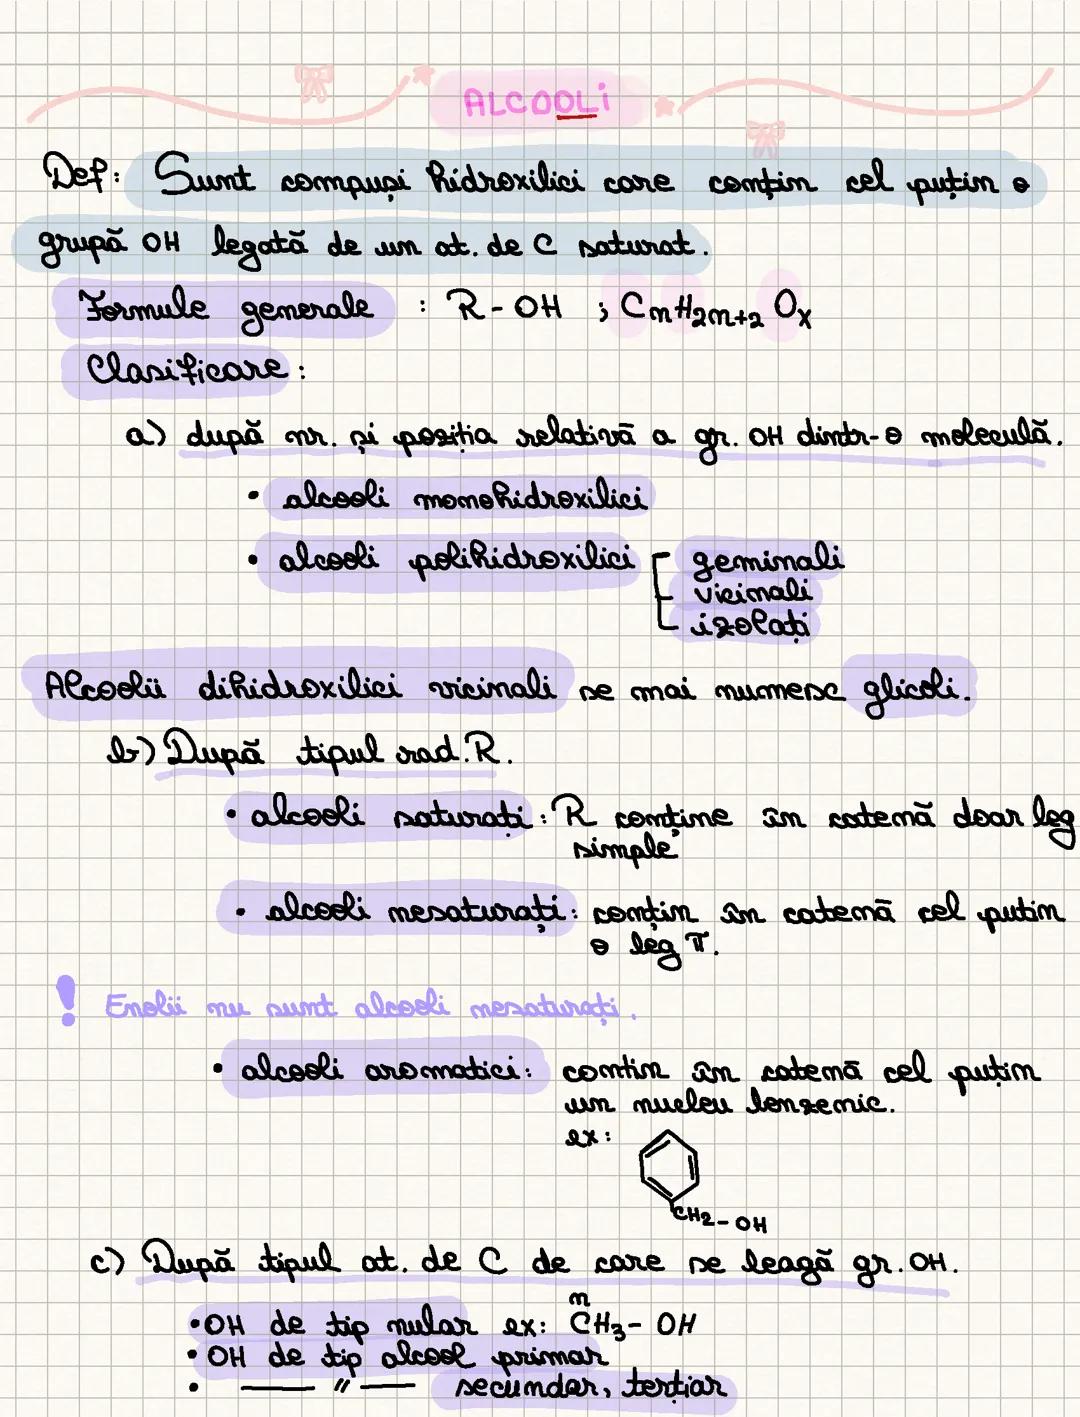 ALCOOLi
Def: Sunt compuși hidroxilici care conțin cel puțin o
grupă OH legată de un at. de C saturat.
Formule generale : R-OH ; CnH2n+2 Ox
Clasificare:
a) după nr. și poziția relativă a gr. OH dintr-o moleculă.
• alcooli monohidroxilici
• alcooli polihidroxilici geminali
vicinali
izolați
Alcoolii dihidroxilici vicinali se mai numesc glicoli.
b) După tipul rad. R.
• alcooli saturați: R conține în catenă doar leg
simple
• alcooli nesaturați: conțin în catenă cel puțin
o leg π.
! Enolii nu sunt alcooli nesaturați.
• alcooli aromatici: contin în catenă cel puțin
un nucleu benzenic.
ex:
CH2-OH
c) După tipul at. de C de care se leagă gr. OH.
n
• OH de tip nular ex: CH3-OH
• OH de tip alcool primar
• —— " —— secundar, terțiar